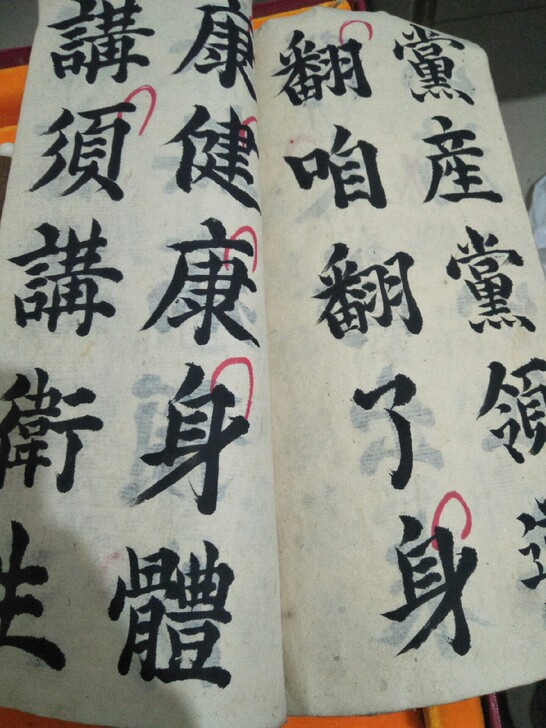 黨産黨領
翻咱翻了身
康健康身體
講須講衛生